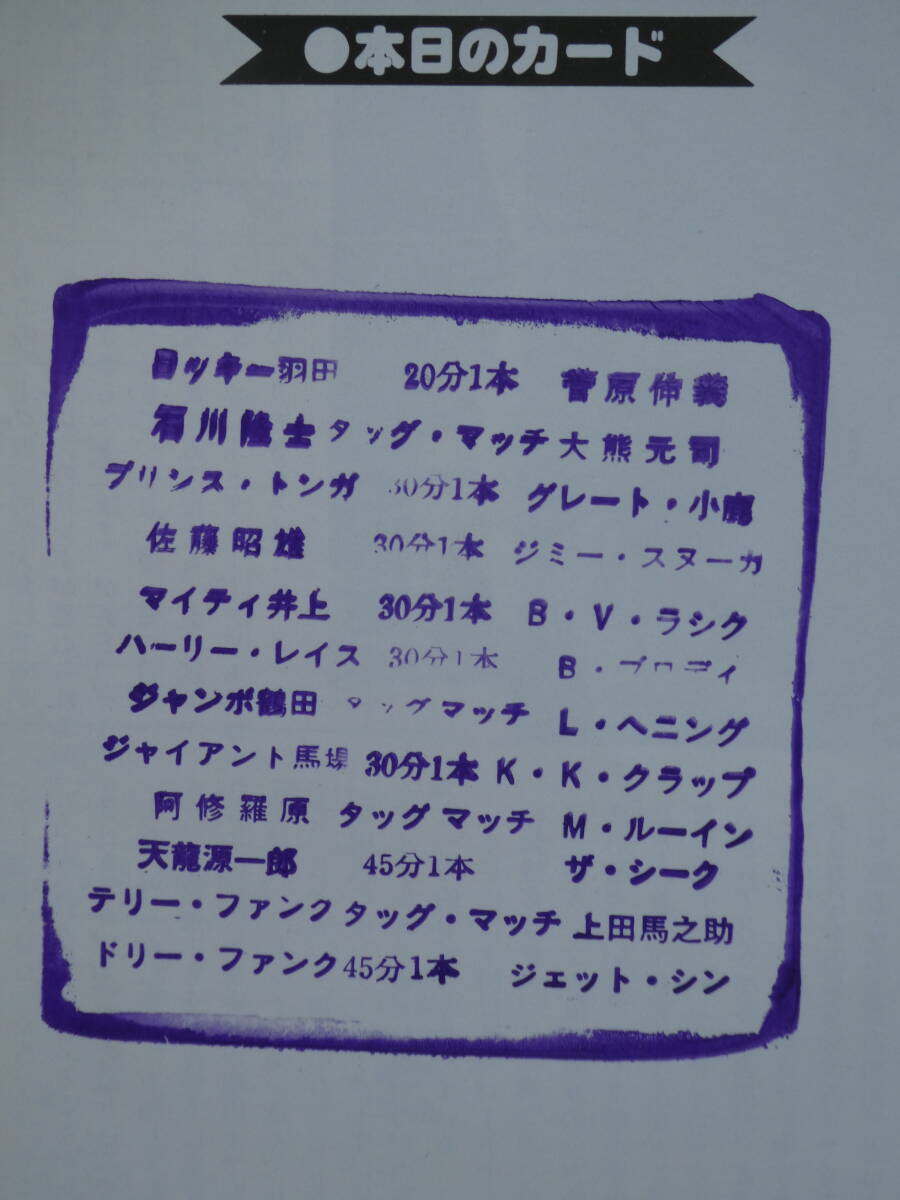 ●本日のカード
ロッキー羽田 20分1本 菅原伸義
石川隆士 タッグ・マッチ 大熊元司
プリンス・トンガ 30分1本 グレート・小鹿
佐藤昭雄 30分1本 ジミー・スヌーカ
マイティ井上 30分1本 B・V・ラシク
ハーリー・レイス 30分1本 B・ブロディ
ジャンボ鶴田 タッグマッチ L・ヘニング
ジャイアント馬場 30分1本 K・K・クラップ
阿修羅原 タッグマッチ M・ルーイン
天龍源一郎 45分1本 ザ・シーク
テリー・ファンク タッグ・マッチ 上田馬之助
ドリー・ファンク 45分1本 ジェット・シン